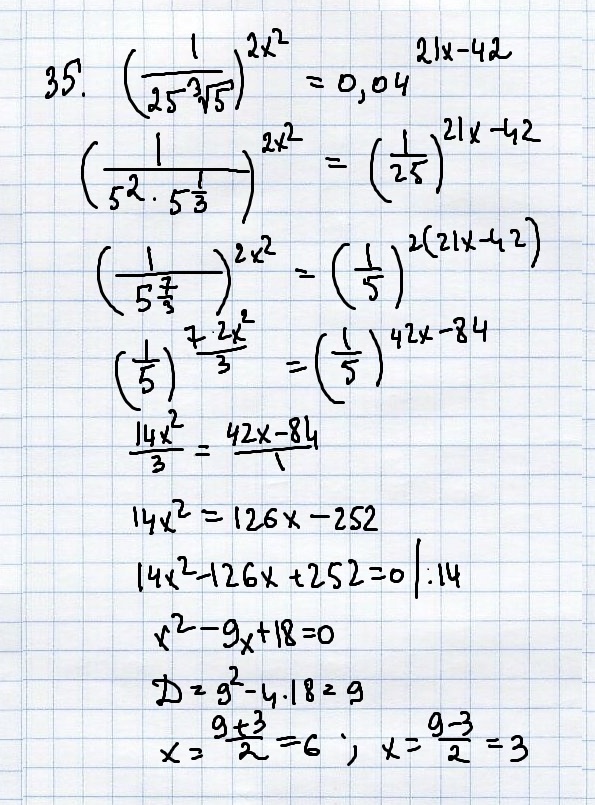 35. (1/(25∛5))^(2x²) = 0,04^(21x-42)
(1/(5² · 5^(1/3)))^(2x²) = (1/25)^(21x-42)
(1/5^(7/3))^(2x²) = (1/5)^(2(21x-42))
(1/5)^(7·2x²/3) = (1/5)^(42x-84)
14x²/3 = (42x-84)/1
14x² = 126x - 252
14x² - 126x + 252 = 0 |:14
x² - 9x + 18 = 0
D = 9² - 4.18 = 9
x = (9+3)/2 = 6 ; x = (9-3)/2 = 3